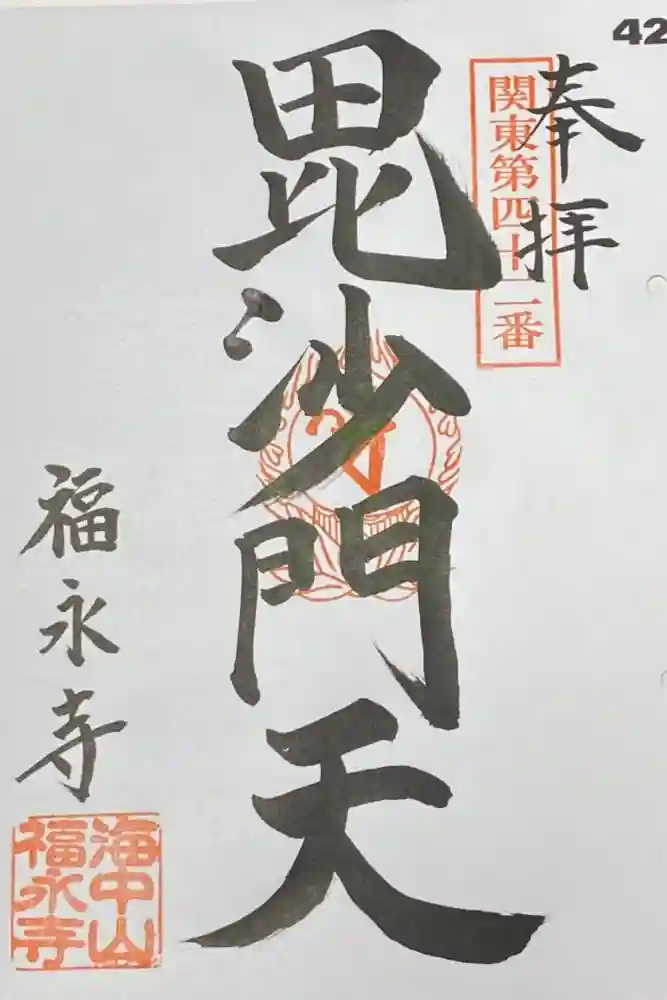 42
奉拝
関東第四十二番
毘沙門天
福永寺
海中山
福永寺